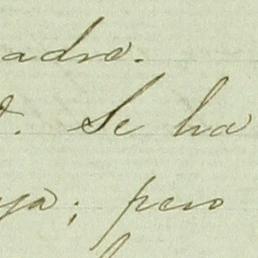 adro.
. Se ha
ya; pero